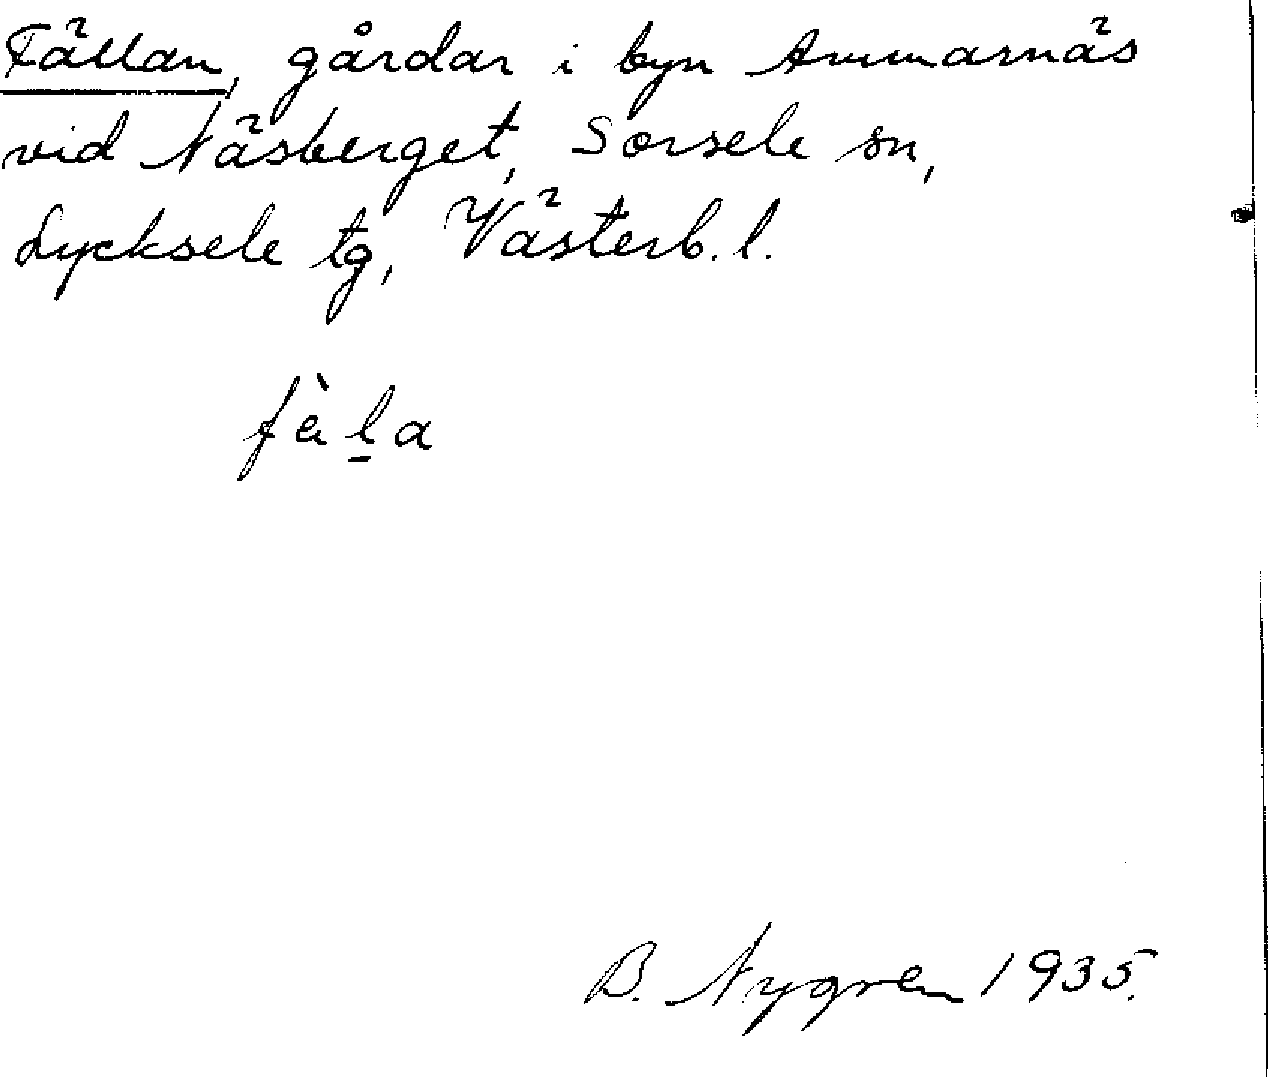 Fällan, gårdar i byn Ammarnäs
vid Näsberget, Sorsele sn,
Lycksele tg, Västerb. l.
fàl̠a
B. Nygren 1935.